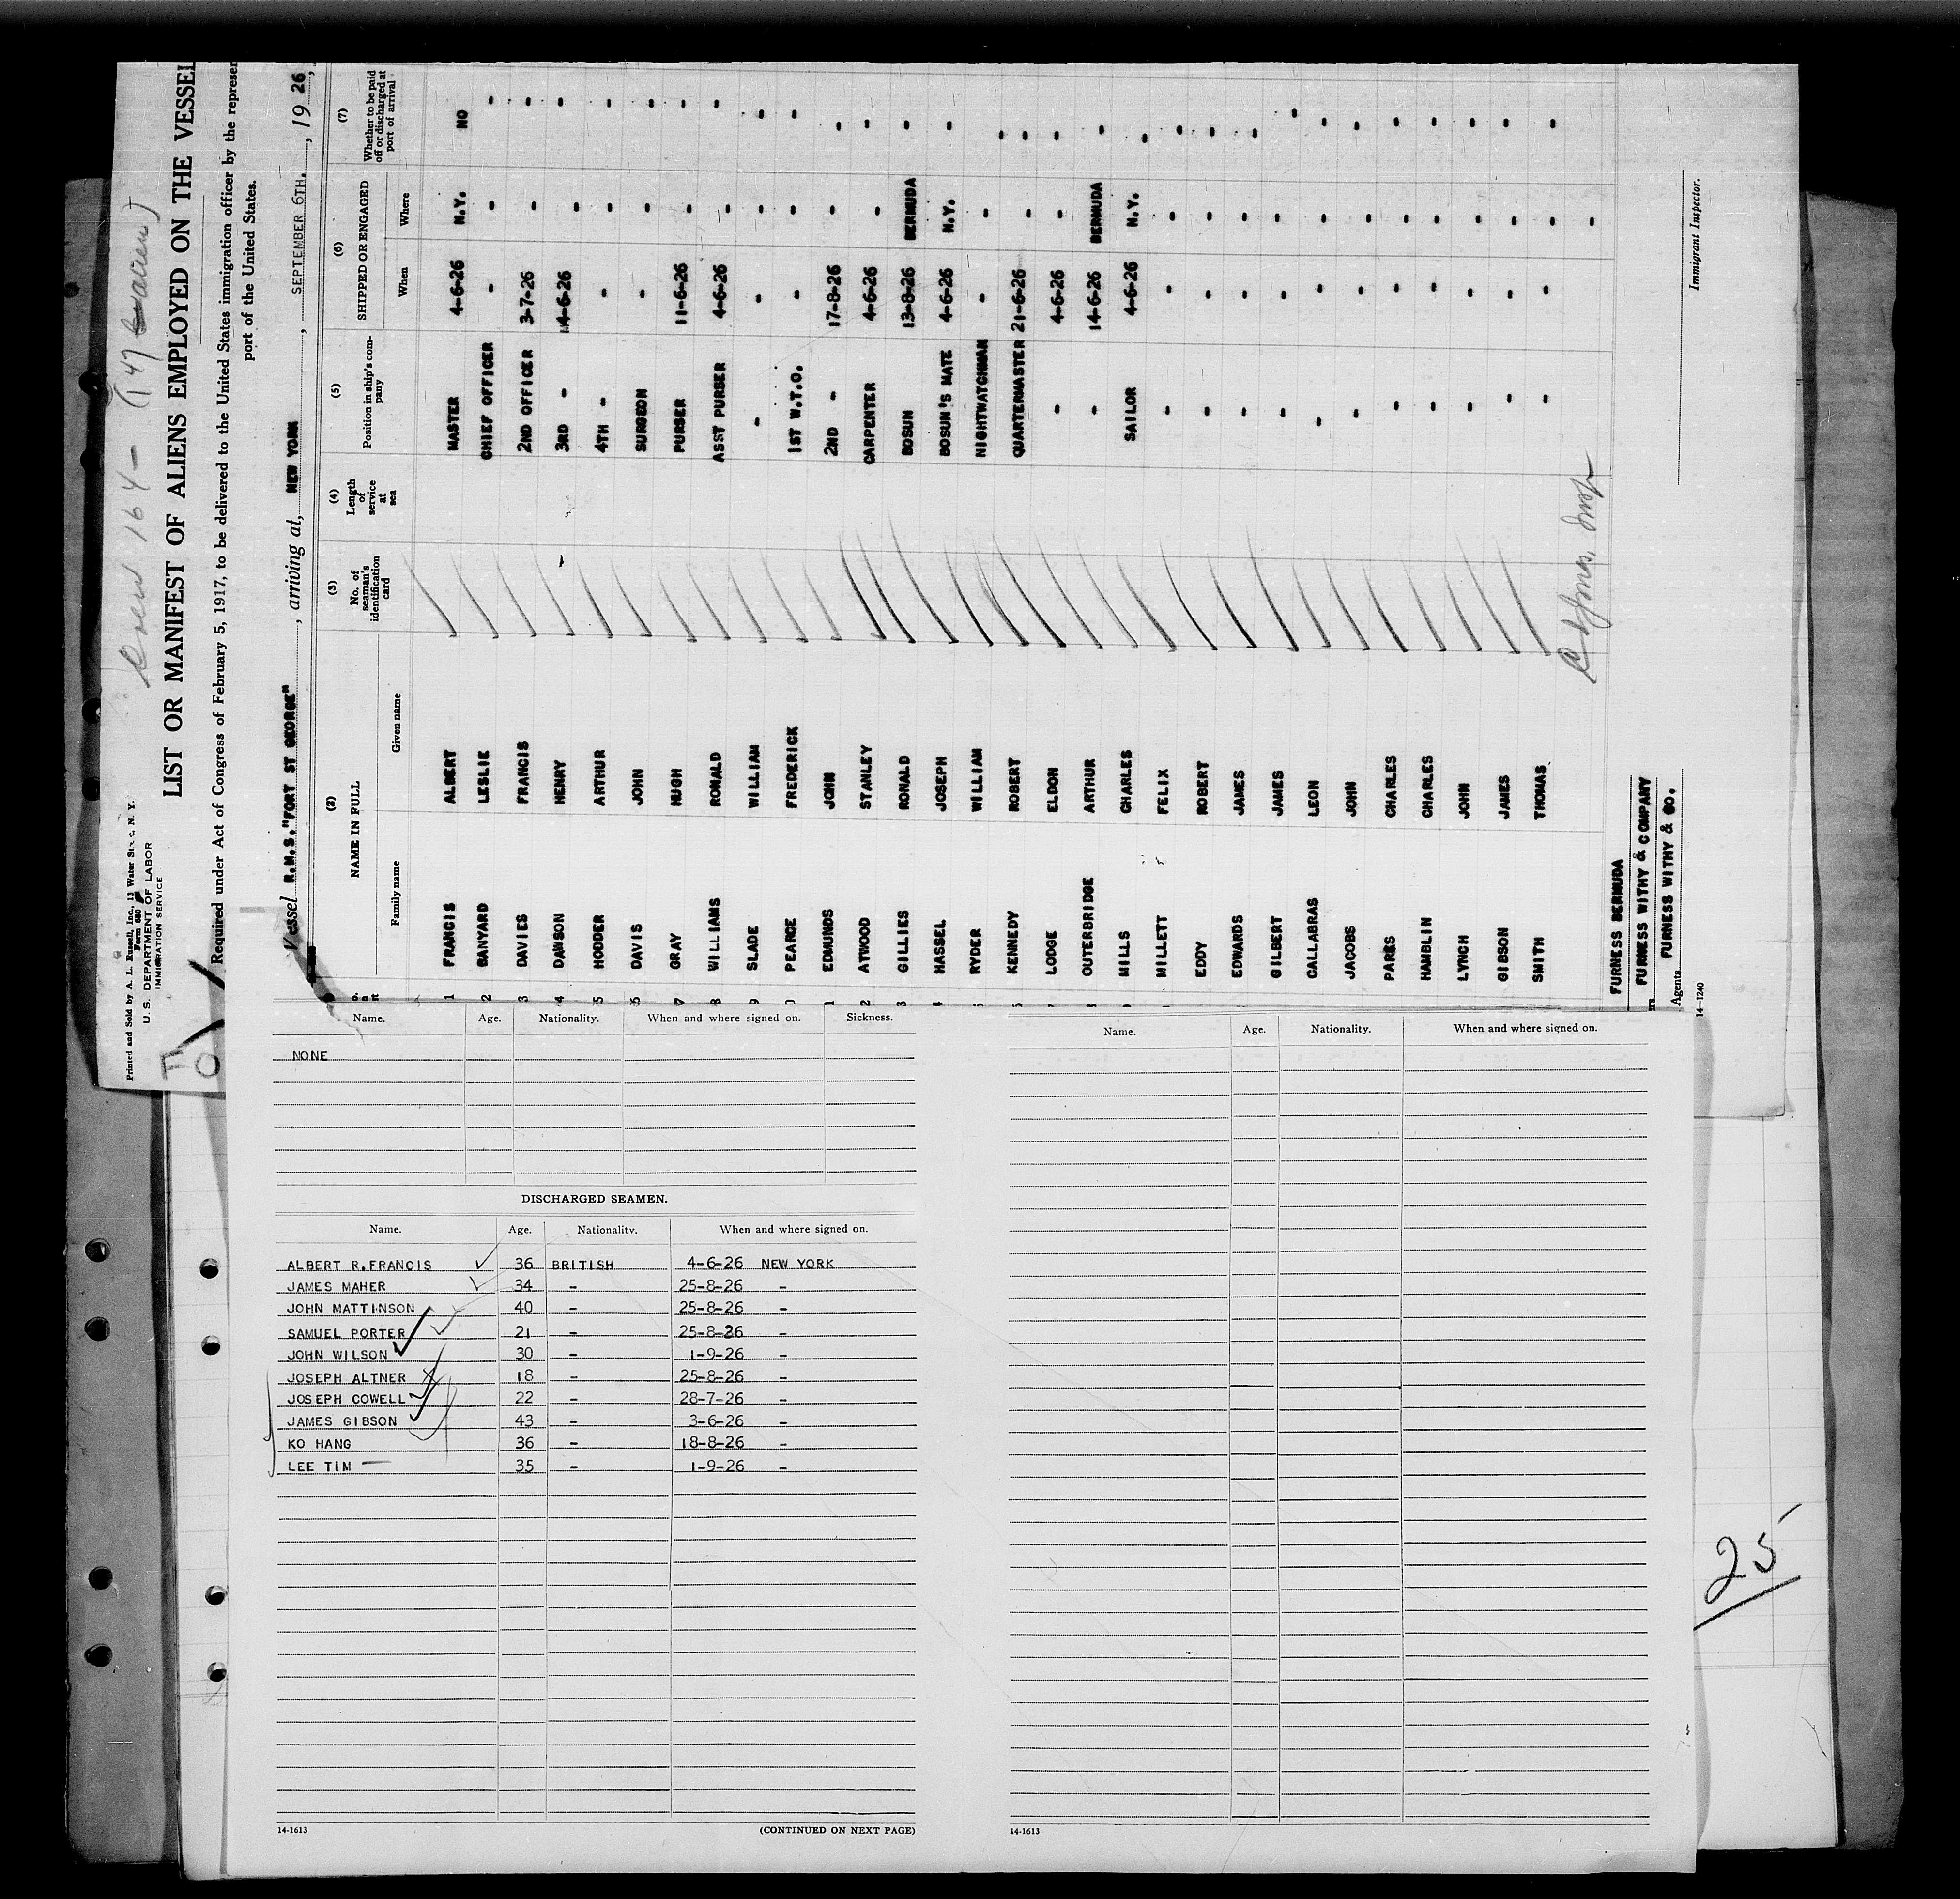 Crew 164 - (147 alien)
Printed and Sold by A. L. Russell, Inc., 13 Water St., N. Y.
Form 680
U. S. DEPARTMENT OF LABOR
IMMIGRATION SERVICE
LIST OR MANIFEST OF ALIENS EMPLOYED ON THE VESSEL
Required under Act of Congress of February 5, 1917, to be delivered to the United States immigration officer by the represen
port of the United States.
Vessel R.M.S."FORT ST GEORGE", arriving at, NEW YORK, SEPTEMBER 6TH., 19 26,
(2) (3) (4) (5) (6) (7)
NAME IN FULL No. of seaman's identification card Length of service at sea Position in ship's company SHIPPED OR ENGAGED Whether to be paid off or discharged at port of arrival
Family name Given name When Where
1 FRANCIS ALBERT MASTER 4-6-26 N.Y. NO
2 BANYARD LESLIE CHIEF OFFICER - - -
3 DAVIES FRANCIS 2ND OFFICER 3-7-26 - -
4 DAWSON HENRY 3RD - 4-6-26 - -
5 HODDER ARTHUR 4TH - - - -
6 DAVIS JOHN SURGEON - - -
7 GRAY HUGH PURSER 11-6-26 - -
8 WILLIAMS RONALD ASST PURSER 4-6-26 - -
9 SLADE WILLIAM - - - -
0 PEARCE FREDERICK 1ST W.T.O. - - -
1 EDMUNDS JOHN 2ND - 17-8-26 - -
2 ATWOOD STANLEY CARPENTER 4-6-26 - -
3 GILLIES RONALD BOSUN 13-8-26 BERMUDA -
4 HASSEL JOSEPH BOSUN'S MATE 4-6-26 N.Y. -
5 RYDER WILLIAM NIGHTWATCHMAN - - -
6 KENNEDY ROBERT QUARTERMASTER 21-6-26 - -
7 LODGE ELDON - 4-6-26 - -
8 OUTERBRIDGE ARTHUR - 14-6-26 BERMUDA -
MILLS CHARLES SAILOR 4-6-26 N.Y. -
MILLETT FELIX - - - -
EDDY ROBERT - - - -
EDWARDS JAMES - - - -
GILBERT JAMES - - - -
CALLABRAS LEON - - - -
JACOBS JOHN - - - -
PARKS CHARLES - - - -
HAMBLIN CHARLES - - - -
LYNCH JOHN - - - -
GIBSON JAMES - - - -
SMITH THOMAS - - - -
FURNESS BERMUDA
FURNESS WITHY & COMPANY
Agents FURNESS WITHY & CO.
Immigrant Inspector.
14-1240
Name. Age. Nationality. When and where signed on. Sickness.
NONE
DISCHARGED SEAMEN.
Name. Age. Nationality. When and where signed on.
ALBERT R.FRANCIS 36 BRITISH 4-6-26 NEW YORK
JAMES MAHER 34 - 25-8-26 -
JOHN MATTINSON 40 - 25-8-26 -
SAMUEL PORTER 21 - 25-8-26 -
JOHN WILSON 30 - 1-9-26 -
JOSEPH ALTNER 18 - 25-8-26 -
JOSEPH COWELL 22 - 28-7-26 -
JAMES GIBSON 43 - 3-6-26 -
KO HANG 36 - 18-8-26 -
LEE TIM 35 - 1-9-26 -
14-1613
(CONTINUED ON NEXT PAGE)
Name. Age. Nationality. When and where signed on.
14-1613
25